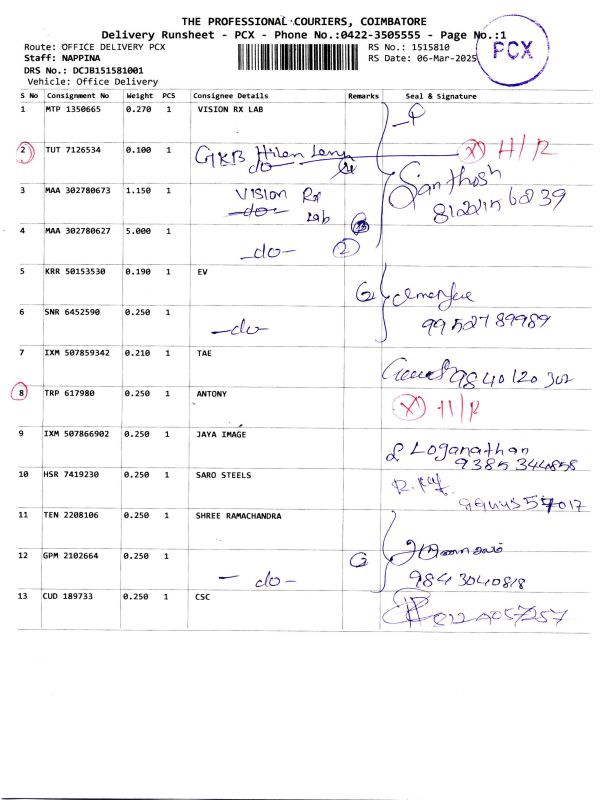 THE PROFESSIONAL COURIERS, COIMBATORE
Delivery Runsheet - PCX - Phone No.:0422-3505555 - Page No.:1
Route: OFFICE DELIVERY PCX RS No.: 1515810
Staff: NAPPINA RS Date: 06-Mar-2025
DRS No.: DCJB151581001
Vehicle: Office Delivery
PCX
S No Consignment No Weight PCS Consignee Details Remarks Seal & Signature
1 MTP 1350665 0.270 1 VISION RX LAB
2 TUT 7126534 0.100 1 GKB X H/R
3 MAA 302780673 1.150 1 Vision Rx Lab Santhosh
-do-
4 MAA 302780627 5.000 1 -do- 2
5 KRR 50153530 0.190 1 EV
6 SNR 6452590 0.250 1 -do- 9952789989
7 IXM 507859342 0.210 1 TAE 9840120302
8 TRP 617980 0.250 1 ANTONY X H/R
9 IXM 507866902 0.250 1 JAYA IMAGE Loganathan
9385344858
10 HSR 7419230 0.250 1 SARO STEELS
11 TEN 2208106 0.250 1 SHREE RAMACHANDRA
12 GPM 2102664 0.250 1 -do- 9843040818
13 CUD 189733 0.250 1 CSC